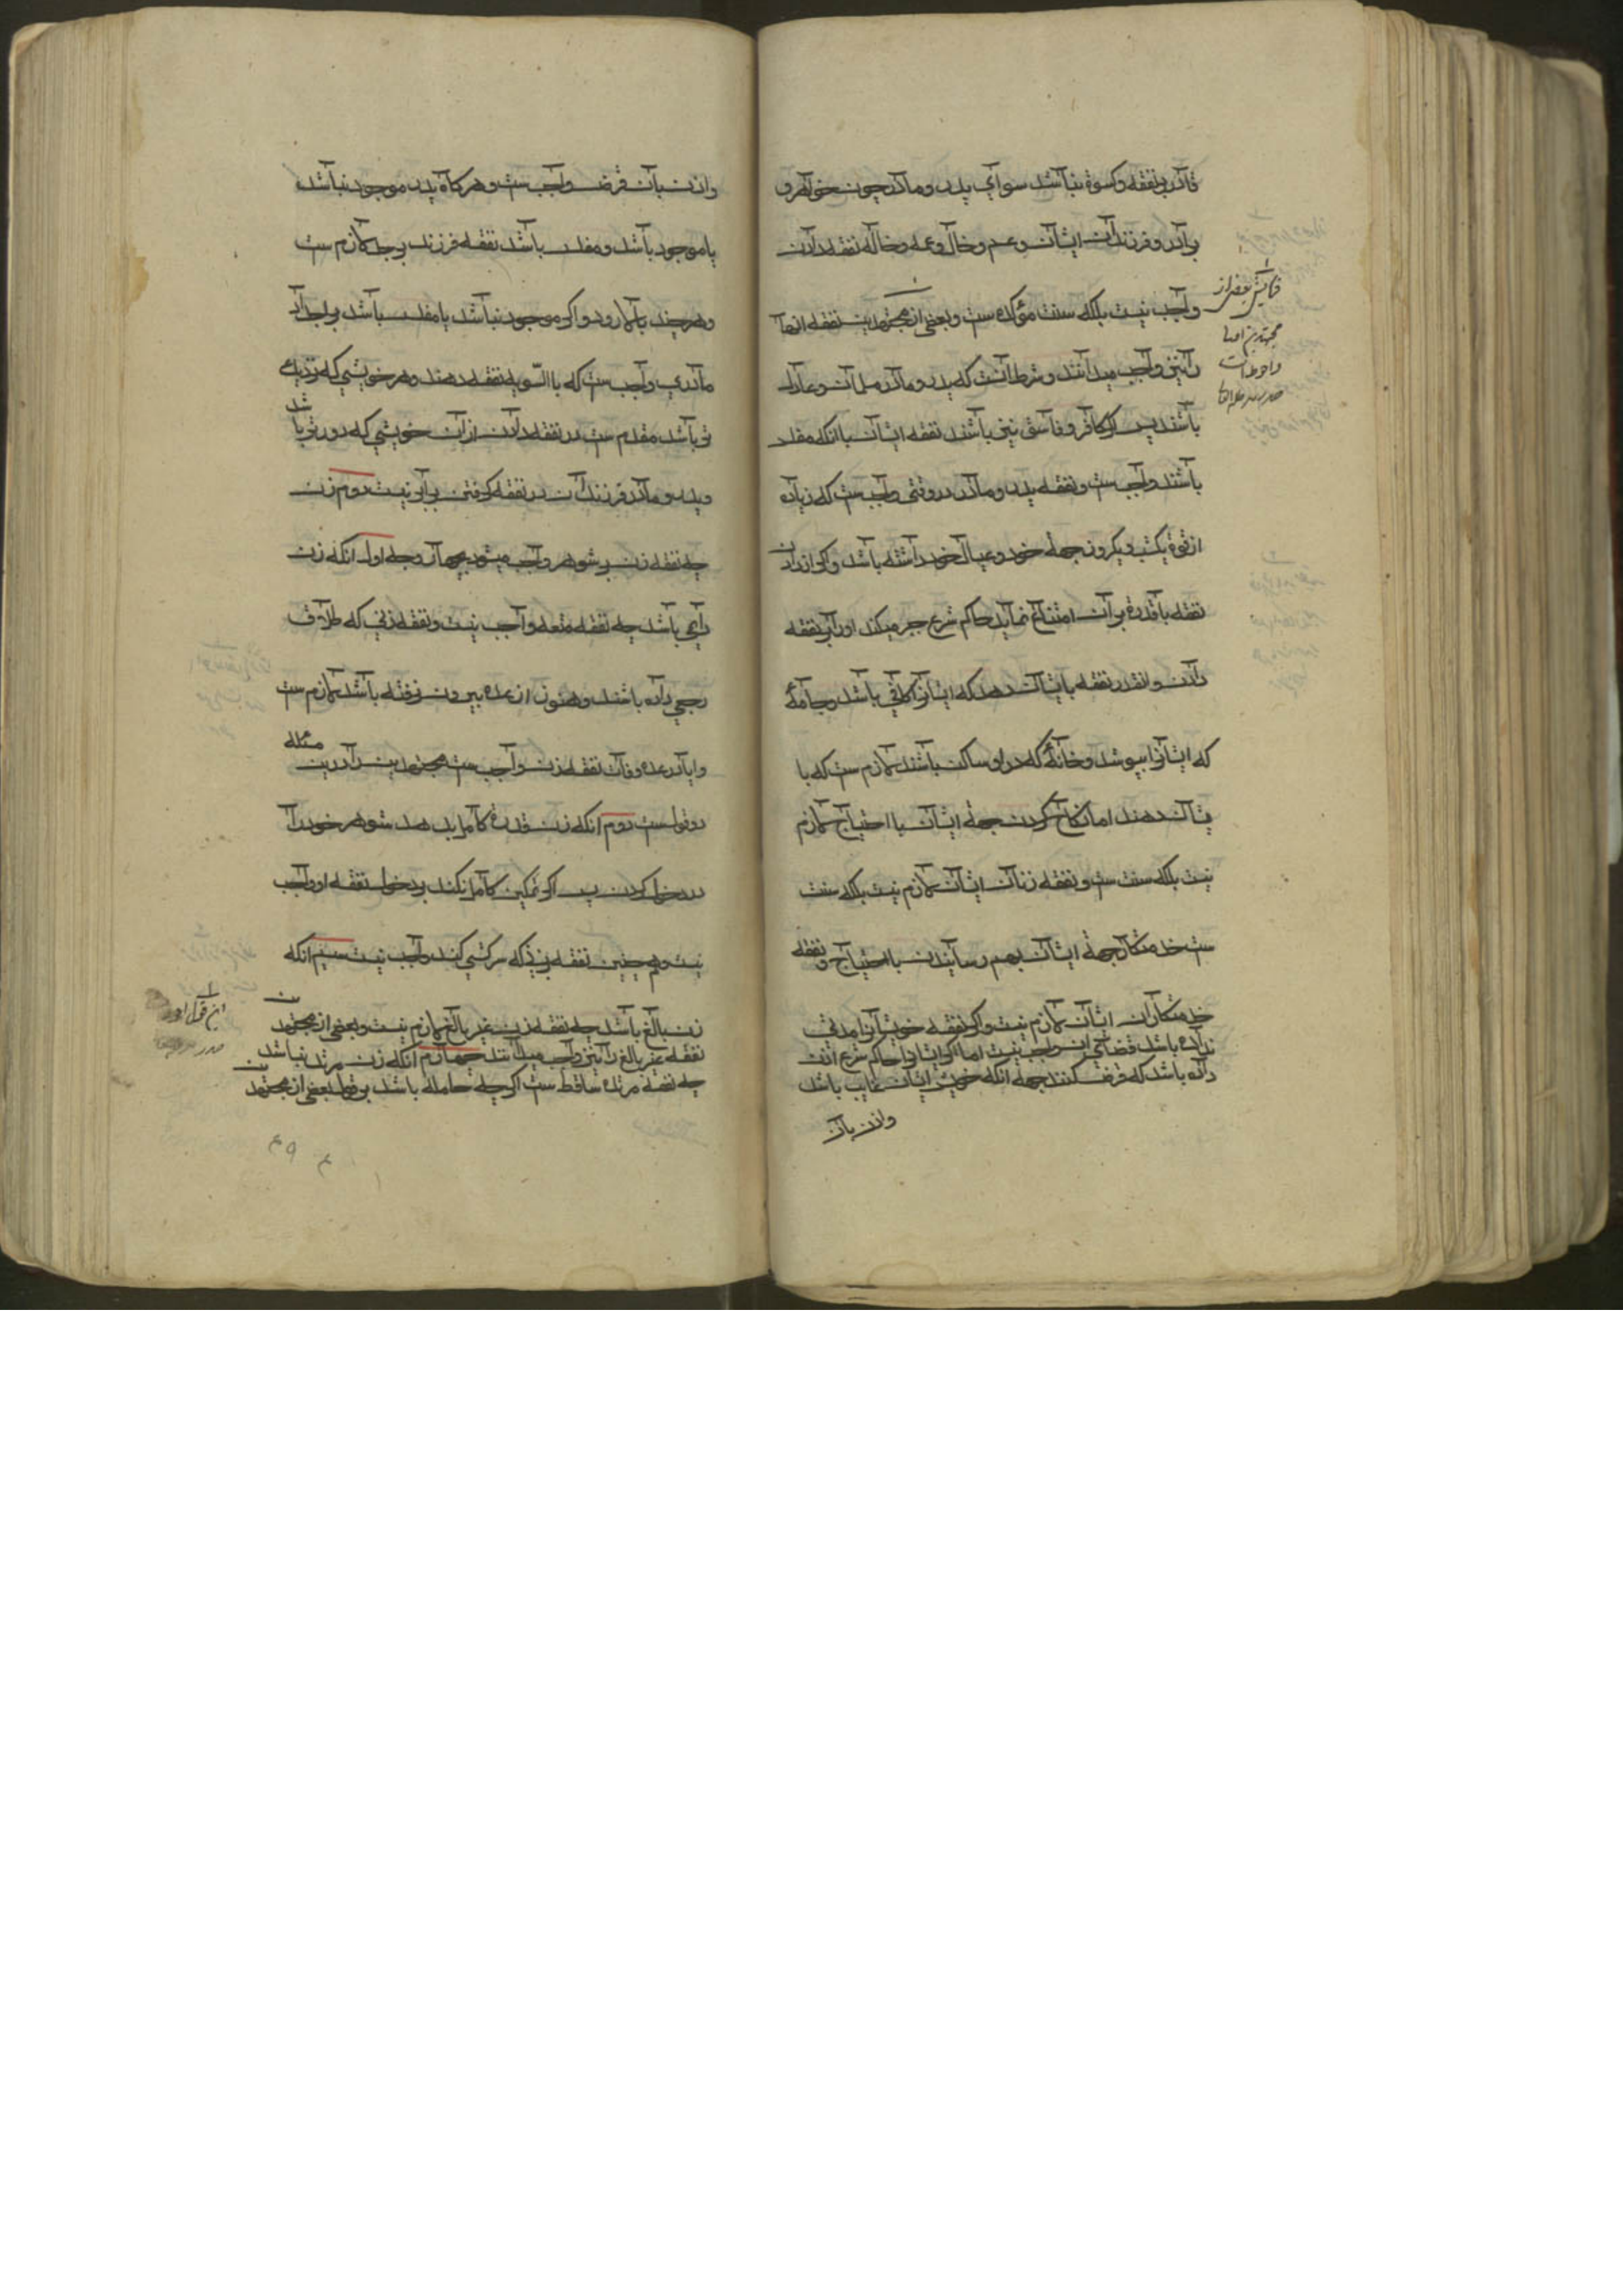 قادر بر نفقه و کسوة نباشد سوای پدر و مادر چون خواهر و
برادر و فرزندان ایشان و عم و خال و عمه و خاله نفقه دادن
واجب نیست بلکه سنت مؤکده ست و بعضی از مجتهدین نفقه انها
را نیز واجب میدانند و شرط انست که پدر و مادر مسلمان و عادل
باشند پس اگر کافر و فاسق نیز باشند نفقه ایشان با انکه مفلس
باشند واجب ست و نفقه پدر و مادر در وقتی واجب ست که زیاده
از قوة یکشب و یکروز جهة خود و عیال خود داشته باشد و اگر از دادن
نفقه با قدرة بر آن امتناع نماید حاکم شرع جبر میکند او را بر نفقه
دادن و انقدر نفقه بایشان دهد که ایشانرا کافی باشد و جامهٔ
که ایشانرا بپوشد و خانهٔ که در او ساکن باشند لازم ست که با
یشان دهند اما نکاح کردن جهة ایشان با احتیاج لازم
نیست بلکه سنت ست و نفقه زنان ایشان لازم نیست بلکه سنت
ست خدمتکار جهة ایشان بهم رسانیدن با احتیاج و نفقه
خدمتکاران ایشان لازم نیست و اگر نفقه خویشانرا مدتی
نداده باشد قضای ان واجب نیست اما اگر ایشانرا حاکم شرع اذن
داده باشد که قرض کنند جهة انکه خویش ایشان غایب باشد
وا ان بان
بعضی از
مجتهدین
واحوط است
صدر
وا ان بان قرض واجب ست و هر کاه پدر موجود نباشد
یا موجود باشد و مفلس باشد نفقه فرزند بر جد لازم ست
و هر چند بالا رود و اگر موجود نباشد یا مفلس باشد بر اجداد
مادری واجب ست که بالسّویه نفقه دهند و هر خویشی که نزدیک
تر باشد مقدم ست در نفقه دادن از ان خویشی که دورتر با
شد
و پدر و مادر و فرزندان در نفقه گرفتن برابرنیست دوم زن
چه نفقه زن بر شوهر واجب میشود بچهار وجه اول انکه زن
دایمی باشد چه نفقه متعه واجب نیست و نفقه زنی که طلاق
رجعی داده باشند و هنوز از عده بیرون نرفته باشد لازم ست
و ایا در عده وفات نفقه زن واجب ست مجتهدین را درین
مسئله
دو قولست دوم انکه زن قدرة کامل بدهد شوهر خود را
در دخول کردن پس اگر تمکین کامل نکند بر دخول نفقه او واجب
نیست و هم چنین نفقه زنی که سرکشی کند واجب نیست سیم انکه
زن بالغ باشد چه نفقه زن غیر بالغ لازم نیست و بعضی از مجتهدین
نفقه غیر بالغ را نیز واجب میدانند چهارم انکه زن مرتد نباشد
چه نفقه مرتده ساقط ست اگرچه حامله باشد بر قول بعضی از مجتهدین
این قول
صدر